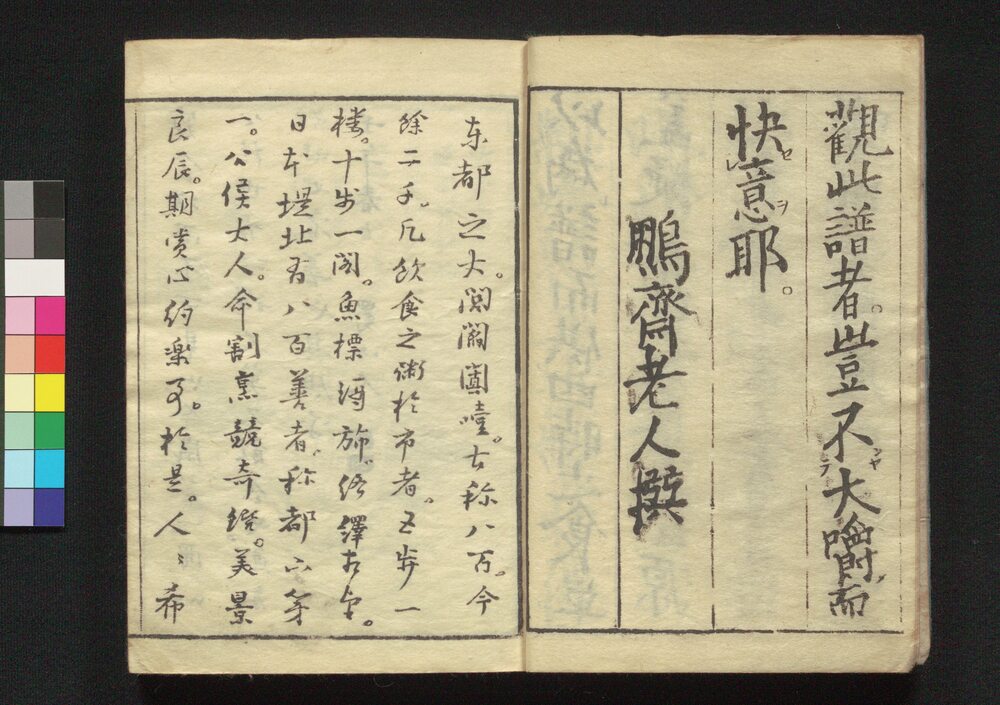 觀此譜者。豈不大嚼而
快意耶。
鵬齋老人撰
東都之大。閭閻闐噎。古称八百。今
餘二千。凡飲食之粥於市者。五歩一
楼。十歩一閣。魚標酒旆。絡繹相望。
日本堤北有八百善者。称都下第
一。公侯大人。命割烹競奇珍。美景
良辰。期賞心約楽事。於是。人〻希